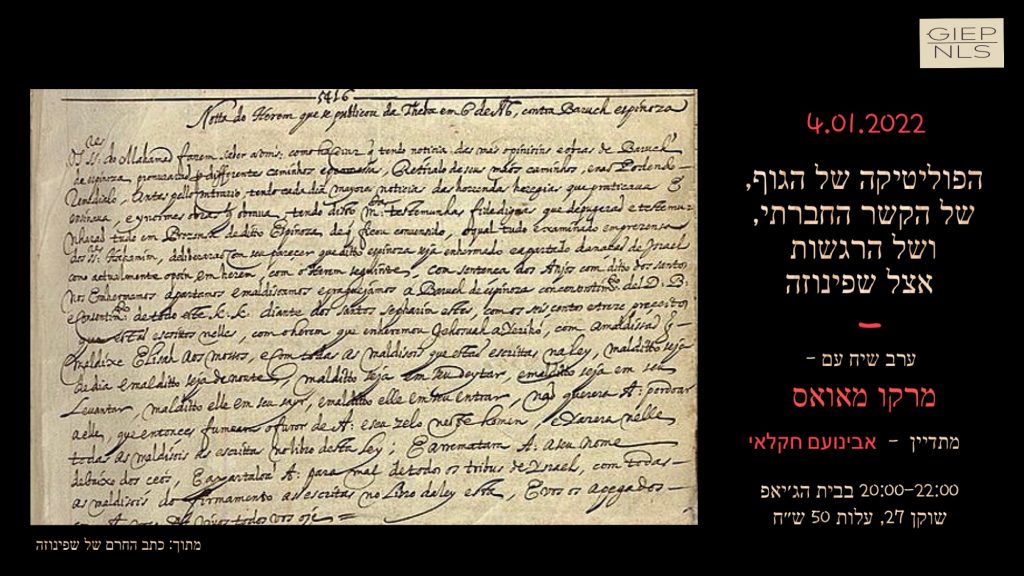 GIEP
NLS
4.01.2022
הפוליטיקה של הגוף,
של הקשר החברתי,
ושל הרגשות
אצל שפינוזה
ערב שיח עם -
מרקו מאואס
מתדיין - אבינועם חקלאי
20:00-22:00 בבית הג׳יאפ
שוקן 27, עלות 50 ש״ח
5416
Notta do Herem que se publicou da Theba em 6 de Ab, contra Baruck espinoza
do Mahamad fazem saber a vms: como havendo tendo noticia das mas opinioins e obras de Baruch
de espinoza procurarão differentes caminhos retiralo de seus máos caminhos,
tendo cada dia mayores noticias das horrendas heregias que praticava
obrava, tendo disto m. testemunhas fidedignas que depugerão e testemu
nharão tudo em de ditto Espinoza, de q ficou convensido, o qual tudo examinado em prezensa
dos ss. Hahamim, deliberarão com seu parecer que ditto espinoza seja enhermado e apartado de nação de Israel
como actualmente o poin em herem, com o Herem seguinte, com sentensa dos Anjos com ditto dos santos
nos Enhermamos apartamos e maldisoamos e praguejamos a Baruch de espinoza
de todo este K. K. diante dos santos Sepharim estes, com os seis centos e treze preceitos
que estão escrittos nelles, com o herem que enheremou Jehosuah a Yeriho, com a maldissão q
maldixe Elisah aos mossos, e com todas as maldisois que estão escrittas na Ley, malditto seja
de dia e malditto seja de noute, malditto seja em seu deytar, e malditto seja em seu
Levantar, malditto elle em seu sayr, e malditto elle em seu entrar, não quererá A. perdoar
a elle, que entonces fumeará o furor de A. e seu zelo neste homin, e yazerá nelle
todas as maldisois as escrittas no libro desta Ley, E arrematará A. a seu nome
debaixo dos ceos, E apartaloa A. para mal de todos os tribus de Israel, com todas
as maldisois do firmamento as escrittas no libro da ley esta, E vos os apegados
vivos todos vos oje
מתוך: כתב החרם של שפינוזה